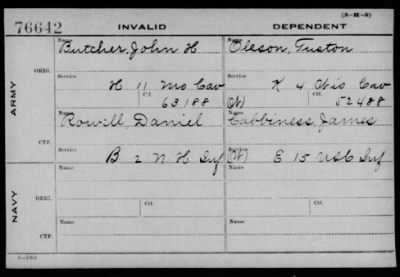 (3-M-3)
76642 INVALID DEPENDENT
Name Name
Butcher, John H Oleson, Tuston
ORIG.
Service Service
H 11 Mo Cav K 4 Ohio Cav
Ctf. Ctf.
63188 (W) 52488
ARMY
Name Name
Rowell, Daniel Cabbiness, James
CTF.
Service Service
B 2 N H Inf (W) E 15 US C Inf
Name Name
ORIG.
Service Ctf. Service Ctf.
NAVY
Name Name
CTF.